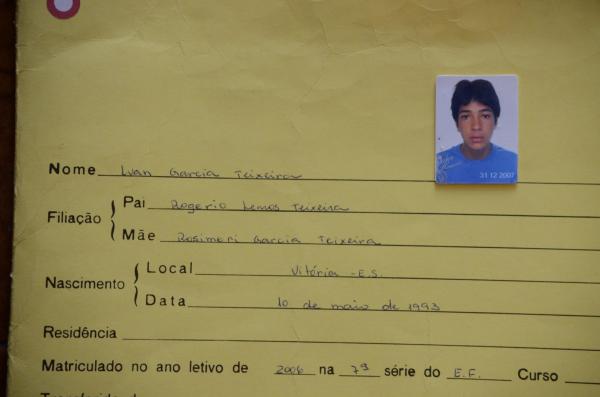 31 12 2007
Nome Luan Garcia Teixeira
Filiação { Pai Rogerio Lemos Teixeira
Mãe Rosimeri Garcia Teixeira
Nascimento { Local Vitória - E.S.
Data 10 de maio de 1993
Residência
Matriculado no ano letivo de 2006 na 7ª série do E.F. Curso